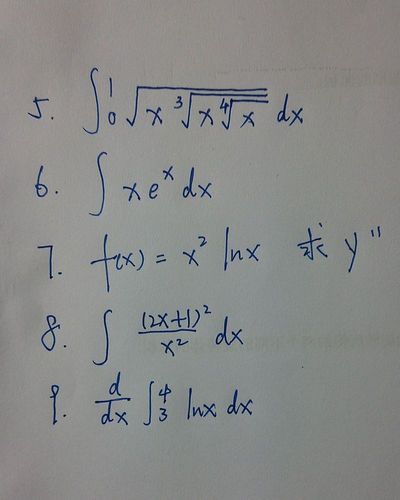 5. ∫₀¹ √(x ³√(x ⁴√x)) dx
6. ∫ xeˣ dx
7. f(x) = x² lnx 求 y"
8. ∫ (2x+1)²/x² dx
9. d/dx ∫₃⁴ lnx dx